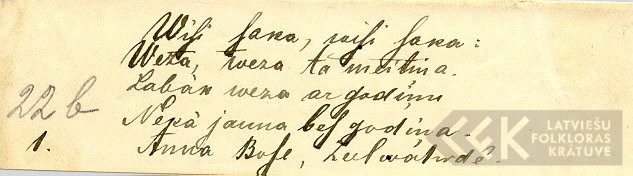 Wiſi ſaka, wiſi ſaka:
Weza, weza ta meitina.
Labāk weza ar godinu
22 b
Nekā jauna beſ godina.
1.
Anna Boſe, Leel
LATVIEŠU
FOLKLORAS
KRĀTUVE